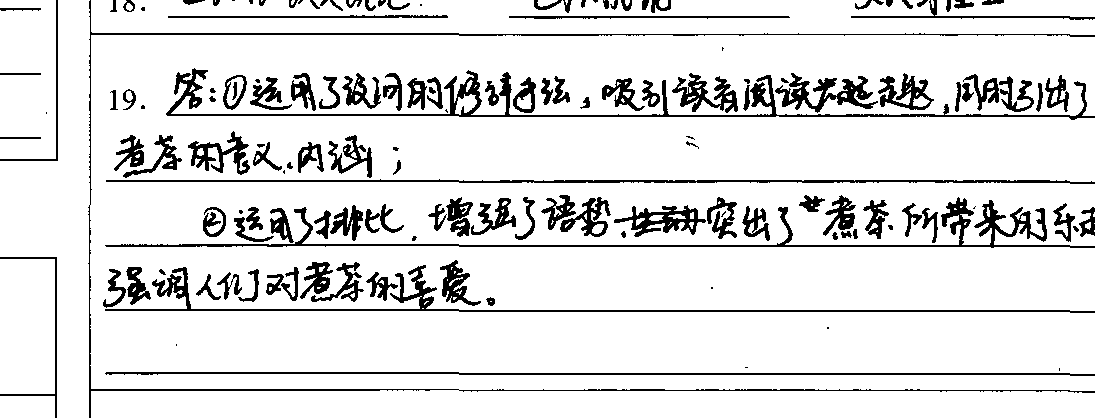 18.
19. 答:①运用了设问的修辞手法,吸引读者阅读兴起趣,同时引出了
煮茶的意义、内涵;
②运用了排比,增强了语势,突出了煮茶所带来的乐
强调人们对煮茶的喜爱。